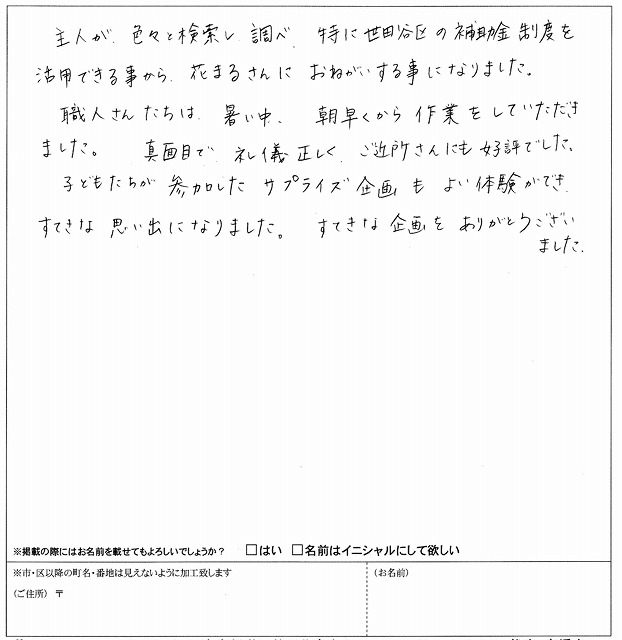 主人が、色々と検索し調べ、特に世田谷区の補助金制度を
活用できる事から、花まるさんにおねがいする事になりました。
職人さんたちは、暑い中、朝早くから作業をしていただき
ました。真面目で、礼儀正しく、ご近所さんにも好評でした。
子どもたちが参加したサプライズ企画も よい体験ができ、
すてきな思い出になりました。すてきな企画をありがとうござい
ました。
※掲載の際にはお名前を載せてもよろしいでしょうか? □はい □名前はイニシャルにして欲しい
※市・区以降の町名・番地は見えないように加工致します
(お名前)
(ご住所) 〒